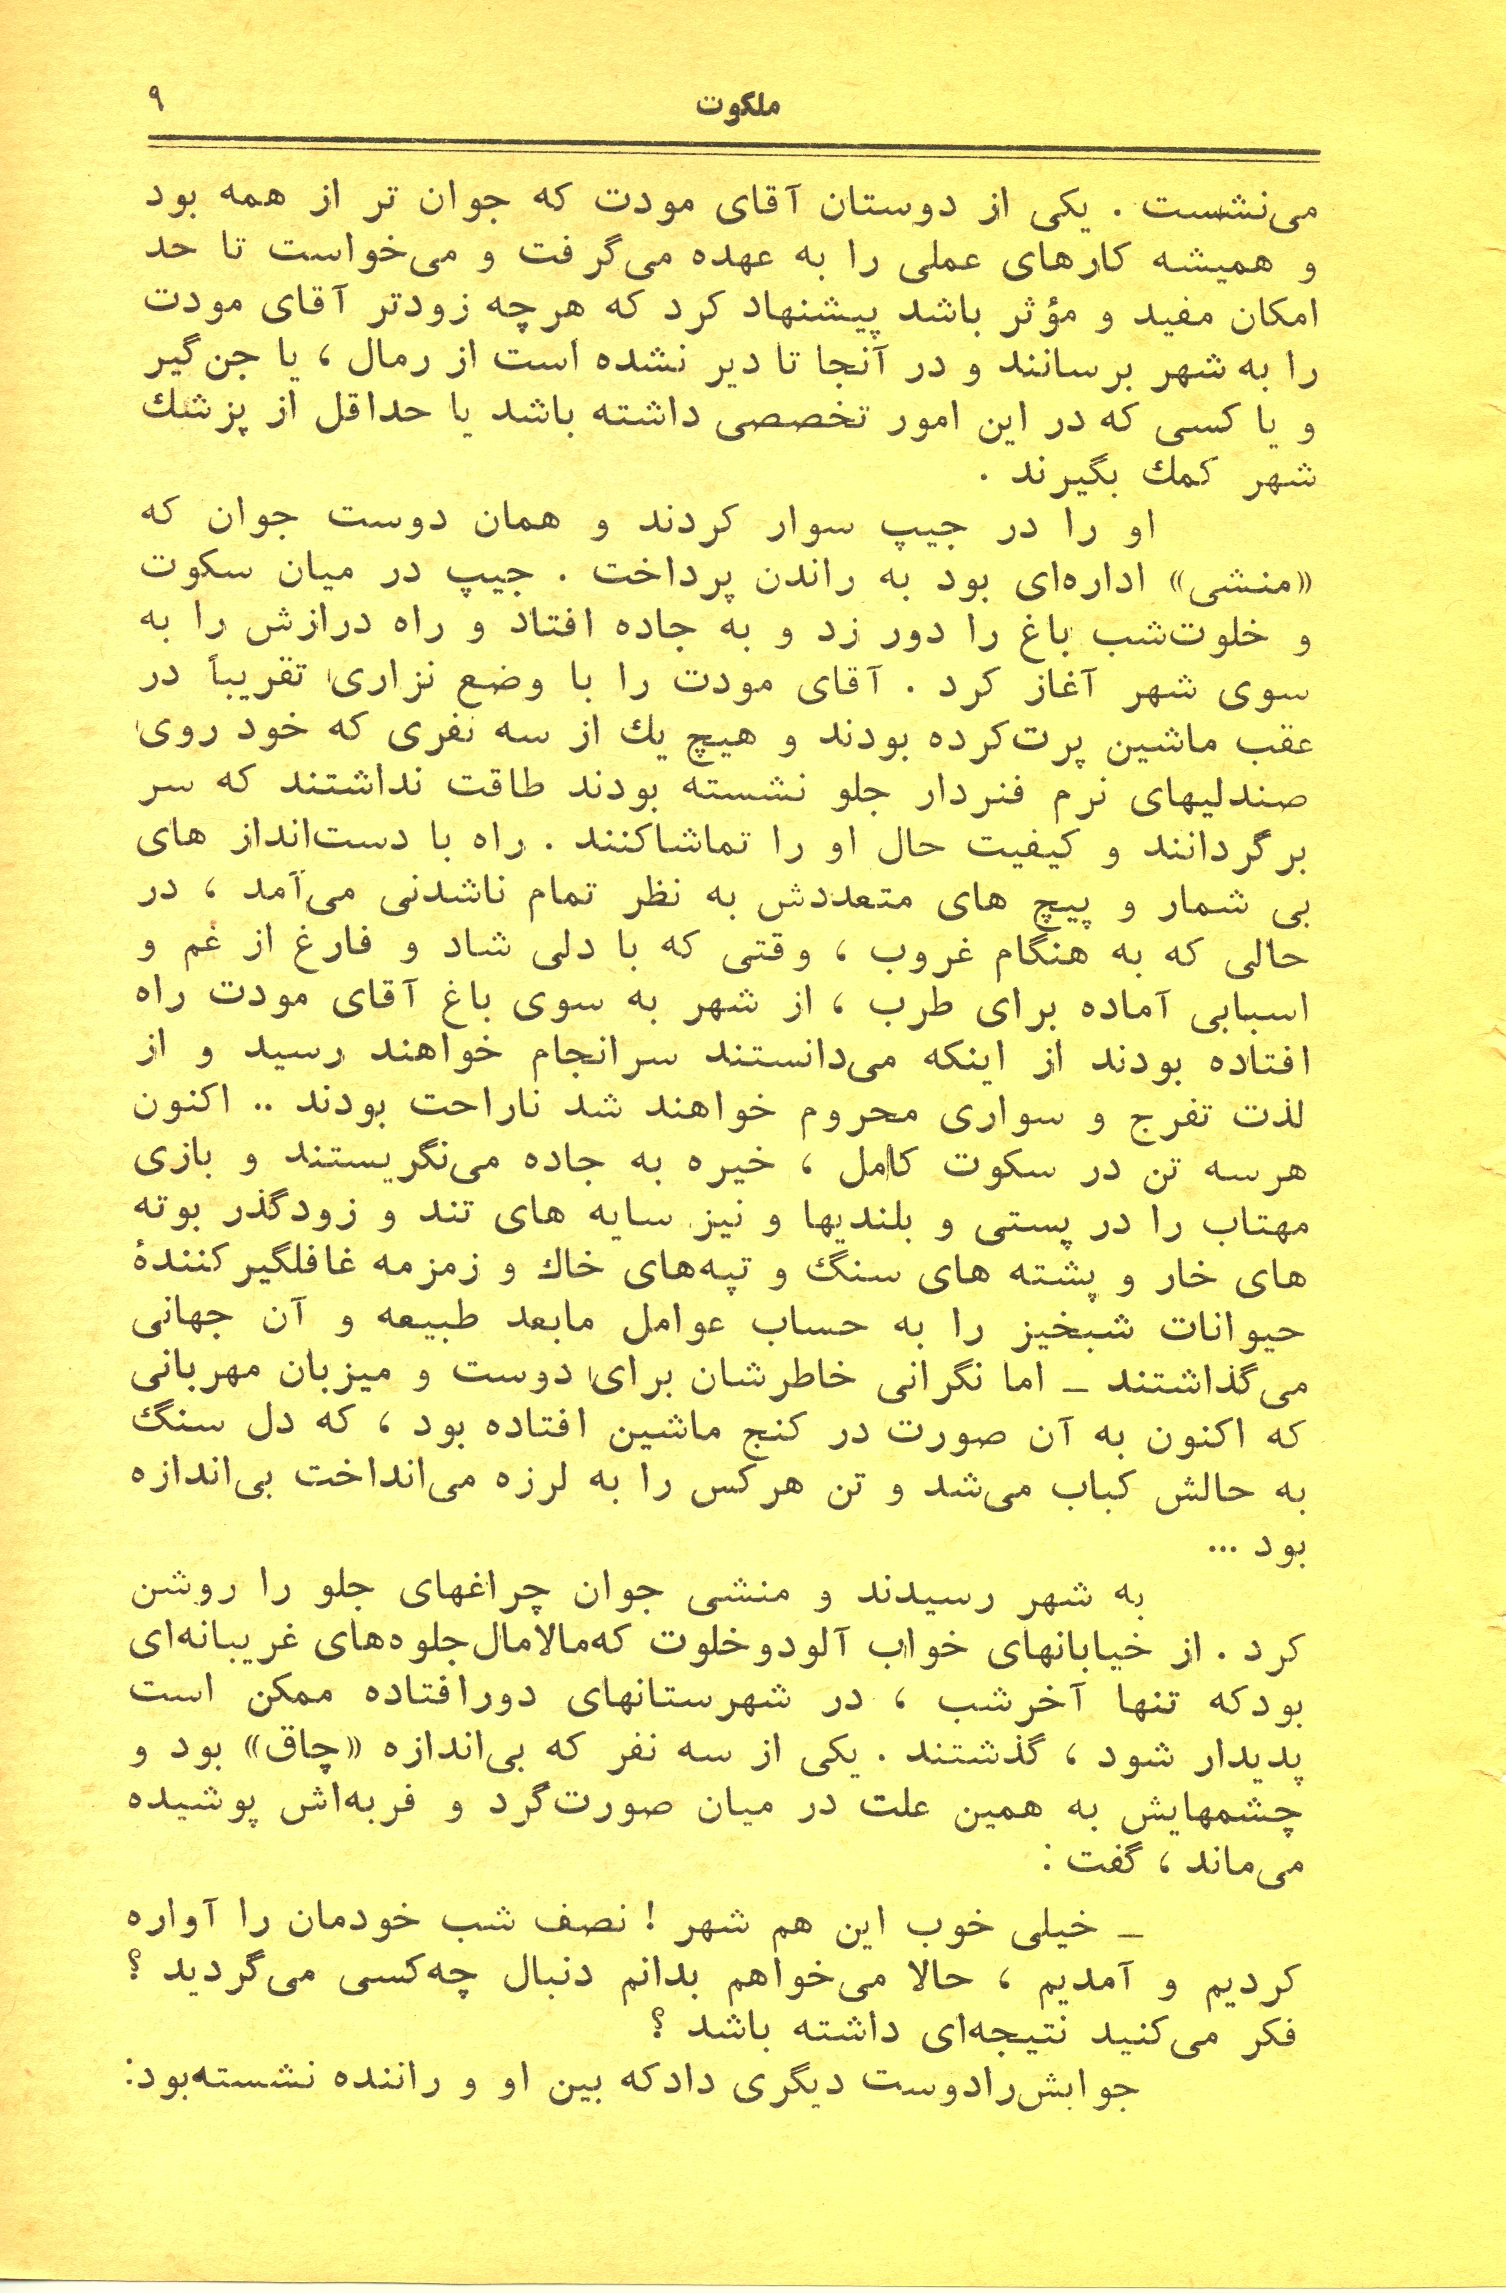 ملکوت
۹
می‌نشست . یکی از دوستان آقای مودت که جوان تر از همه بود
و همیشه کارهای عملی را به عهده می‌گرفت و می‌خواست تا حد
امکان مفید و مؤثر باشد پیشنهاد کرد که هرچه زودتر آقای مودت
را به شهر برسانند و در آنجا تا دیر نشده است از رمال ، یا جن‌گیر
و یا کسی که در این امور تخصصی داشته باشد یا حداقل از پزشك
شهر کمك بگیرند .
او را در جیپ سوار کردند و همان دوست جوان که
«منشی» اداره‌ای بود به راندن پرداخت . جیپ در میان سکوت
و خلوت‌شب باغ را دور زد و به جاده افتاد و راه درازش را به
سوی شهر آغاز کرد . آقای مودت را با وضع نزاری تقریباً در
عقب ماشین پرت‌کرده بودند و هیچ یك از سه نفری که خود روی
صندلیهای نرم فنردار جلو نشسته بودند طاقت نداشتند که سر
برگردانند و کیفیت حال او را تماشاکنند . راه با دست‌انداز های
بی شمار و پیچ های متعددش به نظر تمام ناشدنی می‌آمد ، در
حالی که به هنگام غروب ، وقتی که با دلی شاد و فارغ از غم و
اسبابی آماده برای طرب ، از شهر به سوی باغ آقای مودت راه
افتاده بودند از اینکه می‌دانستند سرانجام خواهند رسید و از
لذت تفرج و سواری محروم خواهند شد ناراحت بودند .. اکنون
هرسه تن در سکوت کامل ، خیره به جاده می‌نگریستند و بازی
مهتاب را در پستی و بلندیها و نیز سایه های تند و زودگذر بوته
های خار و پشته های سنگ و تپه‌های خاك و زمزمه غافلگیرکنندهٔ
حیوانات شبخیز را به حساب عوامل مابعد طبیعه و آن جهانی
می‌گذاشتند ــ اما نگرانی خاطرشان برای دوست و میزبان مهربانی
که اکنون به آن صورت در کنج ماشین افتاده بود ، که دل سنگ
به حالش کباب می‌شد و تن هرکس را به لرزه می‌انداخت بی‌اندازه
بود ...
به شهر رسیدند و منشی جوان چراغهای جلو را روشن
کرد . از خیابانهای خواب آلودوخلوت که‌مالامال‌جلوه‌های غریبانه‌ای
بودکه تنها آخرشب ، در شهرستانهای دورافتاده ممکن است
پدیدار شود ، گذشتند . یکی از سه نفر که بی‌اندازه «چاق» بود و
چشمهایش به همین علت در میان صورت‌گرد و فربه‌اش پوشیده
می‌ماند ، گفت :
ــ خیلی خوب این هم شهر ! نصف شب خودمان را آواره
کردیم و آمدیم ، حالا می‌خواهم بدانم دنبال چه‌کسی می‌گردید ؟
فکر می‌کنید نتیجه‌ای داشته باشد ؟
جوابش‌رادوست دیگری دادکه بین او و راننده نشسته‌بود: